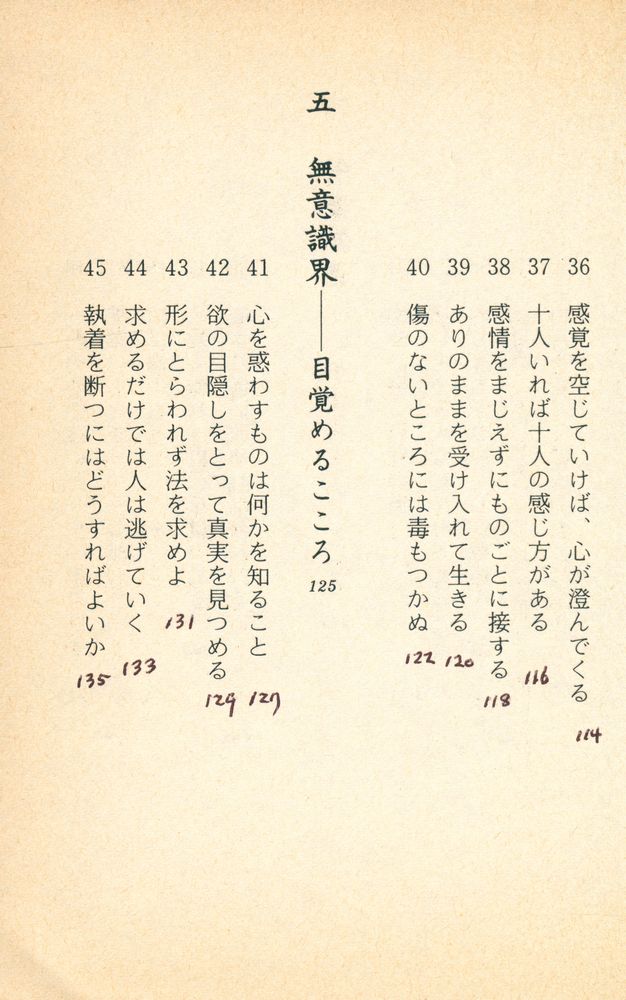 36 感覚を空じていけば、心が澄んでくる 114
37 十人いれば十人の感じ方がある 116
38 感情をまじえずにものごとに接する 118
39 ありのままを受け入れて生きる 120
40 傷のないところには毒もつかぬ 122
五 無意識界――目覚めるこころ 125
41 心を惑わすものは何かを知ること 127
42 欲の目隠しをとって真実を見つめる 129
43 形にとらわれず法を求めよ 131
44 求めるだけでは人は逃げていく 133
45 執着を断つにはどうすればよいか 135